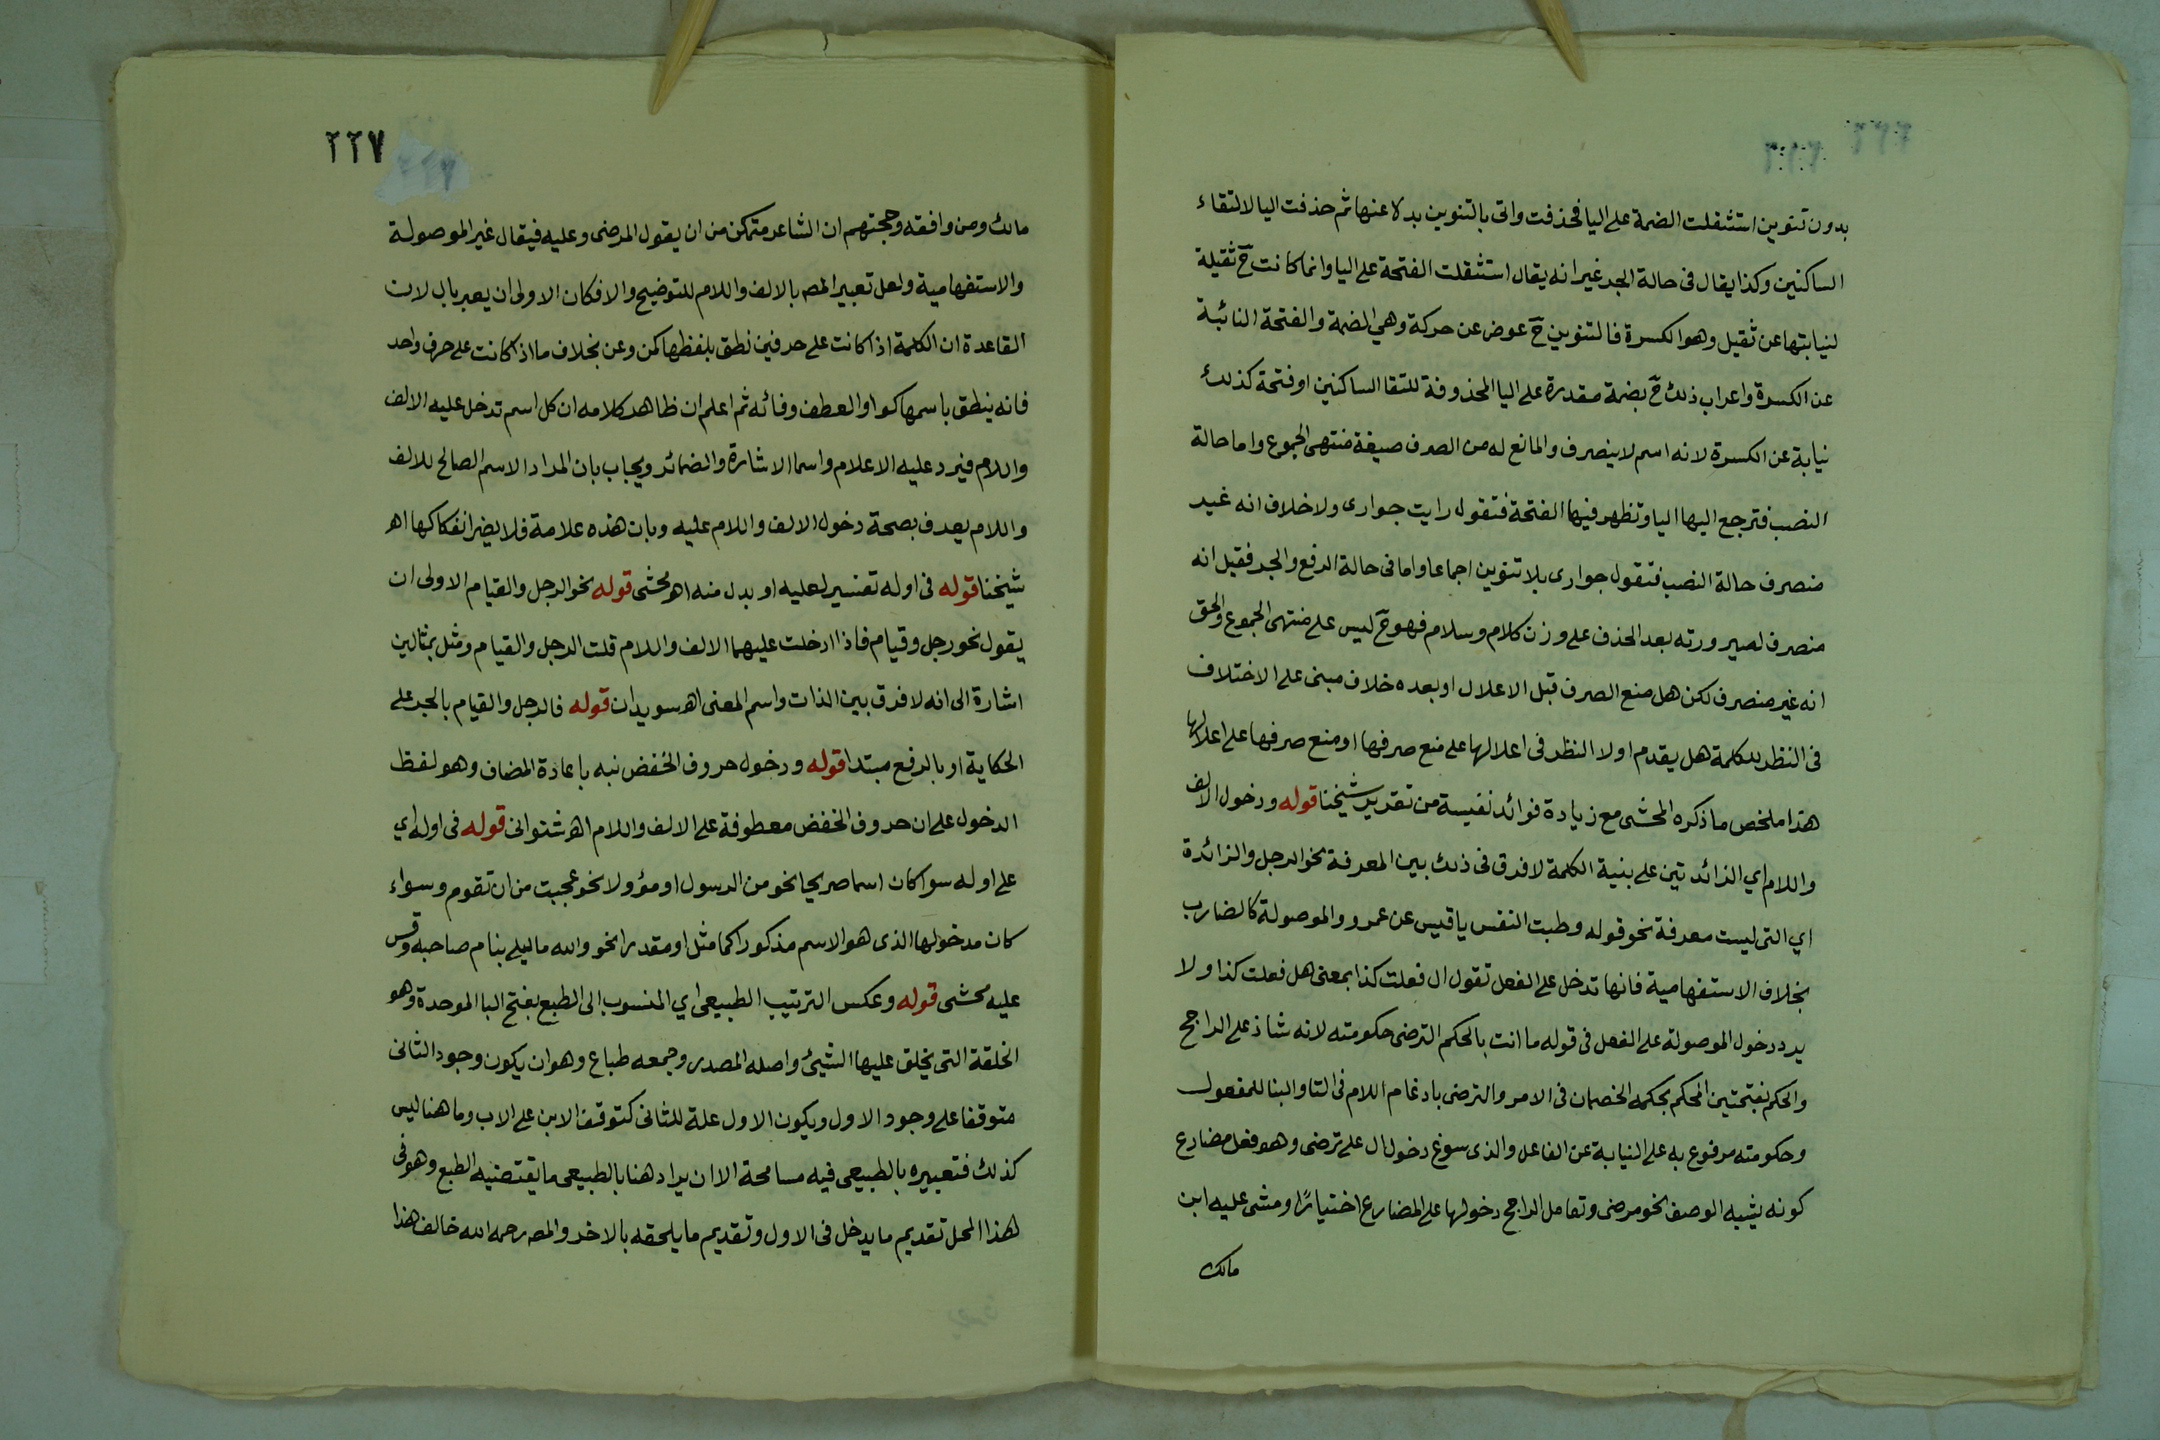 بدون تنوين استثقلت الضمة على اليا فحذفت واتى بالتنوين بدلا عنها ثم حذفت اليا لالتقاء
الساكنين وكذا يقال في حالة الجر غير انه يقال استثقلت الفتحة على اليا وانما كانت ح ثقيلة
لنيابتها عن ثقيل وهو الكسرة فالتنوين ح عوض عن حركة وهي الضمة والفتحة النائبة
عن الكسرة واعراب ذلك ح بضمة مقدرة على اليا المحذوفة للتقا الساكنين او فتحة كذلك
نيابة عن الكسرة لانه اسم لا ينصرف والمانع له من الصرف صيغة منتهى الجموع واما حالة
النصب فترجع اليها اليا وتظهر فيها الفتحة فتقول رايت جوارى ولا خلاف انه غير
منصرف حالة النصب فتقول جوارى بلا تنوين اجماعا واما في حالة الرفع والجر فقيل انه
منصرف لصيرورته بعد الحذف على وزن كلام وسلام فهو ح ليس على منتهى الجموع والحق
انه غير منصرف لكن هل منع الصرف قبل الاعلال او بعده خلاف مبنى على الاختلاف
في النظر للكلمة هل يقدم اولا النظر في اعلالها على منع صرفها او منع صرفها على اعلالها
هذا ملخص ما ذكره المحشى مع زيادة فوائد نفيسة من تقرير شيخنا قوله ودخول الالف
واللام اي الزائدتين على بنية الكلمة لا فرق في ذلك بين المعرفة نحو الرجل والزائدة
اي التى ليست معرفة نحو قوله وطبت النفس يا قيس عن عمرو والموصولة كالضارب
بخلاف الاستفهامية فانها تدخل على الفعل تقول ال فعلت كذا بمعنى هل فعلت كذا ولا
يرد دخول الموصولة على الفعل في قوله ما انت بالحكم الترضى حكومته لانه شاذ على الراجح
والحكم بفتحتين المحكم يحكمه الخصمان في الامر والترضى بادغام اللام في التا والبنا للمفعول
وحكومته مرفوع به على النيابة عن الفاعل والذى سوغ دخول ال على ترضى وهو فعل مضارع
كونه يشبه الوصف نحو مرضى وتعامل الراجح دخولها على المضارع اختيارًا ومشى عليه ابن
مالك
٢٢٧
مالك ومن وافقه وحجتهم ان الشاعر متمكن من ان يقول المرضى وعليه فيقال غير الموصولة
والاستفهامية ولعل تعبير المص بالالف واللام للتوضيح والا فكان الاولى ان يعبر بال لان
القاعدة ان الكلمة اذا كانت على حرفين نطق بلفظها كمن وعن بخلاف ما اذا كانت على حرف واحد
فانه ينطق باسمها كواو العطف وفائه ثم اعلم ان ظاهر كلامه ان كل اسم تدخل عليه الالف
واللام فيرد عليه الاعلام واسما الاشارة والضمائر ويجاب بان المراد الاسم الصالح للالف
واللام يعرف بصحة دخول الالف واللام عليه وبان هذه علامة فلا يضر انفكاكها اهـ
شيخنا قوله في اوله تفسير لعليه او بدل منه اهـ محشى قوله نحو الرجل والقيام الاولى ان
يقول نحو رجل وقيام فاذا ادخلت عليهما الالف واللام قلت الرجل والقيام ومثل بمثالين
اشارة الى انه لا فرق بين الذات واسم المعنى اهـ سويدان قوله فالرجل والقيام بالجر على
الحكاية او بالرفع مبتدا قوله ودخول حروف الخفض نبه باعادة المضاف وهو لفظ
الدخول على ان حروف الخفض معطوفة على الالف واللام اهـ شنوانى قوله في اوله اي
على اوله سوا كان اسما صريحا نحو من الرسول او مؤولا نحو عجبت من ان تقوم وسواء
كان مدخولها الذى هو الاسم مذكورا كما مثل او مقدرا نحو والله ما ليلى بنام صاحبه وقس
عليه محشى قوله وعكس الترتيب الطبيعى اي المنسوب الى الطبع بفتح البا الموحدة وهو
الخلقة التى يخلق عليها الشيئ واصله المصدر وجمعه طباع وهو ان يكون وجود الثانى
متوقفا على وجود الاول ويكون الاول علة للثانى كتوقف الابن على الاب وما هنا ليس
كذلك فتعبيره بالطبيعى فيه مسامحة الا ان يراد هنا بالطبيعى ما يقتضيه الطبع وهو في
هذا المحل تقديم ما يدخل في الاول وتقديم ما يلحقه بالاخر والمص رحمه الله خالف هذا